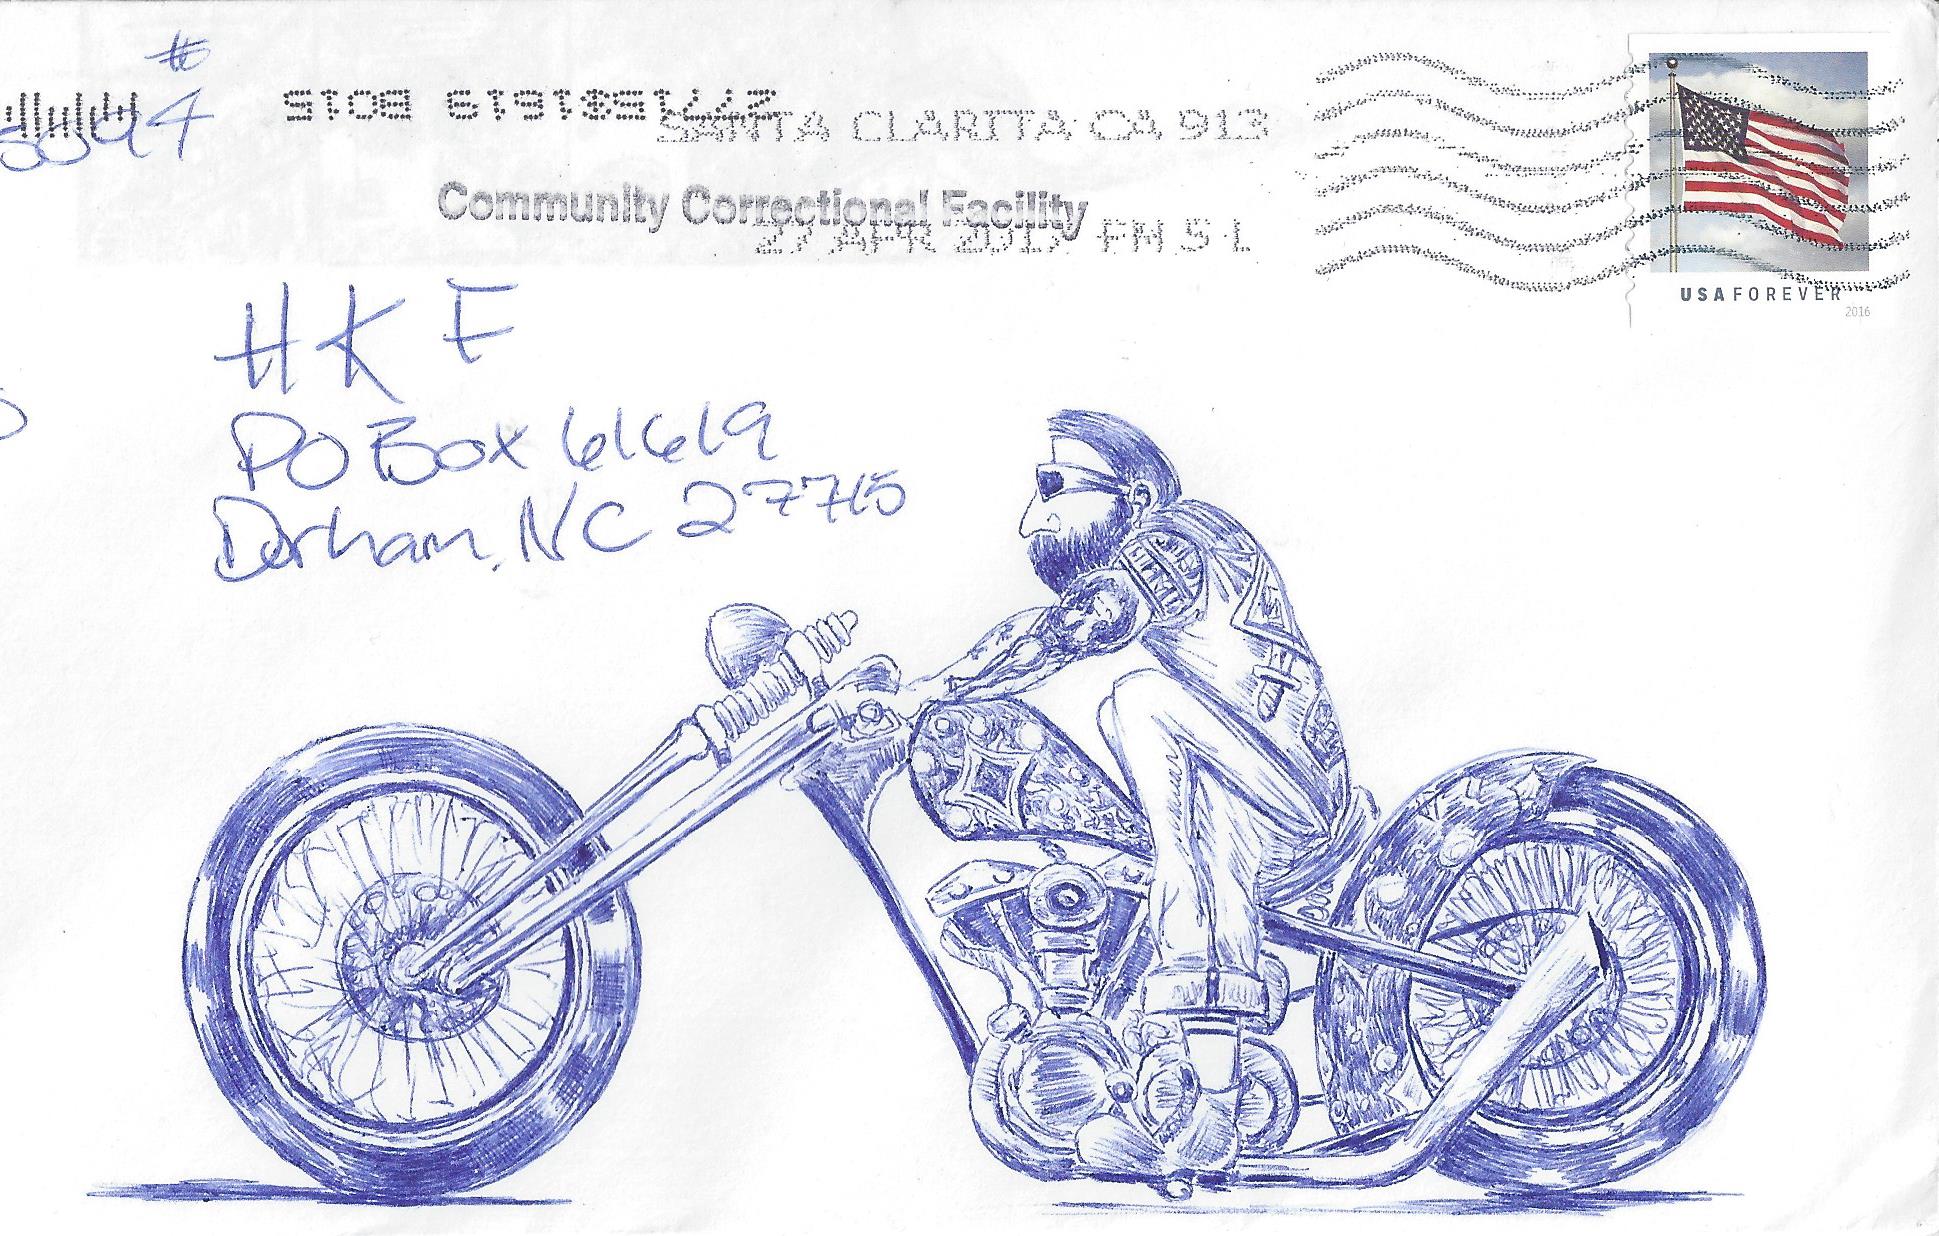 #
4
SANTA CLARITA CA 913
Community Correctional Facility
27 APR 2017 PM 5 L
USA FOREVER
2016
H K F
PO Box 61619
Durham, NC 27715